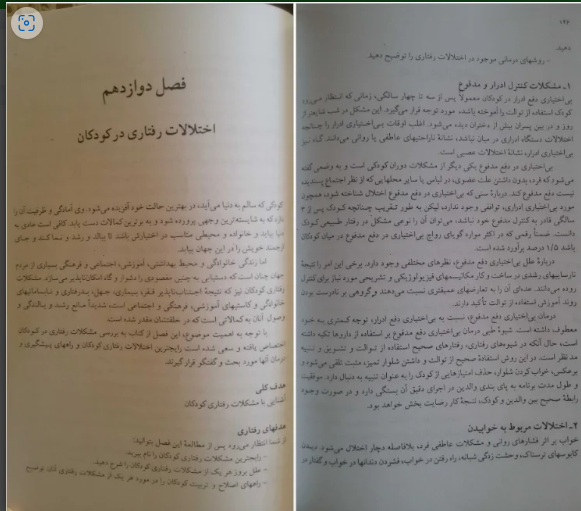 فصل دوازدهم
اختلالات رفتاری در کودکان
کودکی که سالم به دنیا می‌آید، در بهترین حالت خود آفریده می‌شود. وی آمادگی و ظرفیت آن را
دارد که به شایسته‌ترین وجهی پرورده شود و به برترین کمالات دست یابد. کافی است
دنیا بیاید و خانواده و محیطی مناسب در اختیارش باشند تا ببالد و رشد و نما کند و جای
ارجمند خویش را در این جهان بیابد.
اما زندگی خانوادگی و محیط بهداشتی، آموزشی، اجتماعی و فرهنگی بسیاری از مردم
جهان چنان است که دستیابی به چنین مقصودی را دشوار و گاه امکان‌ناپذیر می‌سازد. مشکلات
رفتاری کودکان نیز که نتیجهٔ اجتناب‌ناپذیر فقر، بیماری، جهل، بدرفتاری و نابسامانیهای
خانوادگی و کاستیهای آموزشی، فرهنگی و اجتماعی است، شدیداً مانع رشد و بالندگی و
وصول آنان به کمالاتی که در خلقتشان مقدر شده است.
با توجه به اهمیت موضوع، این فصل از کتاب به بررسی مشکلات رفتاری در کودکان
اختصاص یافته و سعی شده است رایجترین اختلالات رفتاری کودکان و راههای پیشگیری و
درمان آنها مورد بحث و گفتگو قرار گیرند.
هدف کلی
آشنایی با مشکلات رفتاری کودکان
هدفهای رفتاری
از شما انتظار می‌رود پس از مطالعهٔ این فصل بتوانید:
- رایجترین مشکلات رفتاری کودکان را نام ببرید.
- علل بروز هر یک از مشکلات رفتاری کودکان را شرح دهید.
- راههای اصلاح و تربیت کودکان را در مورد هر یک از مشکلات رفتاری آنان توضیح
۱۴۶
دهید.
- روشهای درمانی موجود در اختلالات رفتاری را توضیح دهید.
۱ـ مشکلات کنترل ادرار و مدفوع
بی‌اختیاری دفع ادرار در کودکان، معمولاً پس از سه تا چهار سالگی، زمانی که انتظار می‌رود
کودک استفاده از توالت را آموخته باشد، مورد توجه قرار می‌گیرد. این مشکل در شب شایعتر از
روز و در بین پسران بیش از دختران دیده می‌شود. اغلب اوقات بی‌اختیاری ادرار را چنانچه
اختلالات دستگاه ادراری در میان نباشد، نشانهٔ ناراحتیهای عاطفی یا روانی می‌دانند. گاه نیز
بی‌اختیاری ادرار، نشانهٔ اختلالات عصبی است.
بی‌اختیاری در دفع مدفوع یکی دیگر از مشکلات دوران کودکی است و به وضعی گفته
می‌شود که فرد، بدون داشتن علت عضوی، در لباس یا سایر محلهایی که از نظر اجتماع پسندیده
نیست دفع مدفوع کند. دربارهٔ سنی که بی‌اختیاری در دفع مدفوع اختلال شناخته شود، همچون
مورد بی‌اختیاری ادرار، توافقی وجود ندارد، لیکن به طور تقریب چنانچه کودک پس از ۴
سالگی قادر به کنترل مدفوع خود نباشد، می‌توان آن را نوعی مشکل در رفتار طبیعی کودک
دانست. ضمناً رقمی که در اکثر موارد گویای رواج بی‌اختیاری در دفع مدفوع در میان کودکان
باشد ۱/۵ درصد برآورد شده است.
دربارهٔ علل بی‌اختیاری دفع مدفوع، نظرهای مختلفی وجود دارد. برخی این امر را نتیجهٔ
نارساییهای رشدی در ساخت و کار مکانیسمهای فیزیولوژیکی و تشریحی مورد نیاز برای کنترل
روده می‌دانند. عده‌ای آن را به تعارضهای عمیقتری نسبت می‌دهند و گروهی بر نادرست بودن
روند آموزش استفاده از توالت تأکید دارند.
درمان بی‌اختیاری مدفوع، نسبت به بی‌اختیاری دفع ادرار، توجه کمتری به خود
معطوف داشته است. شیوهٔ طبی درمان بی‌اختیاری دفع مدفوع بر استفاده از داروها تکیه داشته
است، حال آنکه در شیوه‌های رفتاری، رفتارهای صحیح استفاده از توالت و تشویق و تنبیه
مد نظر است. در این روش استفادهٔ صحیح از توالت و داشتن شلوار تمیز، مثبت تلقی می‌شود و
برعکس، خراب کردن شلوار، حذف امتیازهایی از کودک را به عنوان تنبیه به دنبال دارد. موفقیت
و طول مدت برنامه به پای بندی والدین در اجرای دقیق آن بستگی دارد و در صورت وجود
رابطهٔ صحیح بین والدین و کودک، نتیجهٔ کار رضایت بخش خواهد بود.
۲ـ اختلالات مربوط به خوابیدن
خواب بر اثر فشارهای روانی و مشکلات عاطفی فرد، بلافاصله دچار اختلال می‌شود. دیدن
کابوسهای ترسناک، وحشت زدگی شبانه، راه رفتن در خواب، فشردن دندانها در خواب، و گفتار در